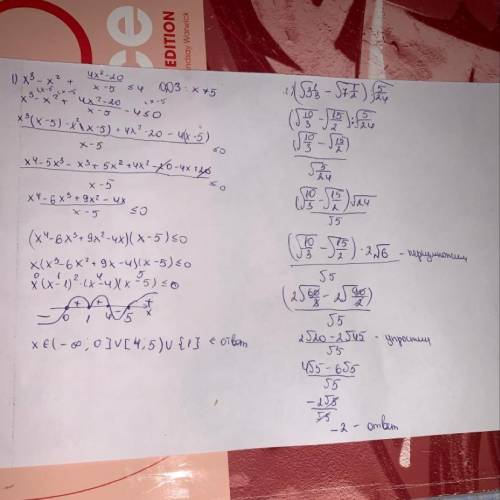 ce
EDITION
Lindsay Warwick
1) x³ - x² + (4x² - 20)/(x - 5) ≤ 4 ОДЗ: x ≠ 5
x³ - x² + (4x² - 20)/(x - 5) - 4 ≤ 0
(x³(x-5) - x²(x-5) + 4x² - 20 - 4(x-5))/(x - 5) ≤ 0
(x⁴ - 5x³ - x³ + 5x² + 4x² - 20 - 4x + 20)/(x - 5) ≤ 0
(x⁴ - 6x³ + 9x² - 4x)/(x - 5) ≤ 0
(x⁴ - 6x³ + 9x² - 4x)(x - 5) ≤ 0
x(x³ - 6x² + 9x - 4)(x - 5) ≤ 0
x(x - 1)²·(x - 4)(x - 5) ≤ 0
0 1 4 5 x
x ∈ (-∞, 0] ∪ [4, 5) ∪ {1} ответ
(√(10/3) - √(15/2)) : √(5/24)
(√(10/3) - √(15/2))/√(5/24)
(√(10/3) - √(15/2))√24/√5
(√(10/3) - √(15/2))·2√6/√5
(2√(60/3) - 2√(90/2))/√5
(2√20 - 2√45)/√5 - упростим
(4√5 - 6√5)/√5
-2√5/√5
-2 - ответ